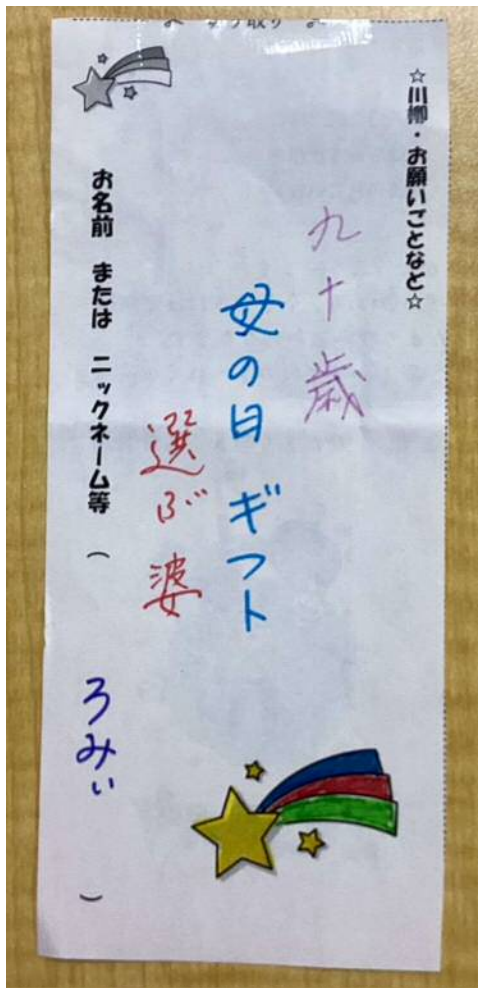 ☆川柳・お願いごとなど☆
九十歳
母の日 ギフト
選ぶ婆
お名前 または ニックネーム等 ( ろみぃ )